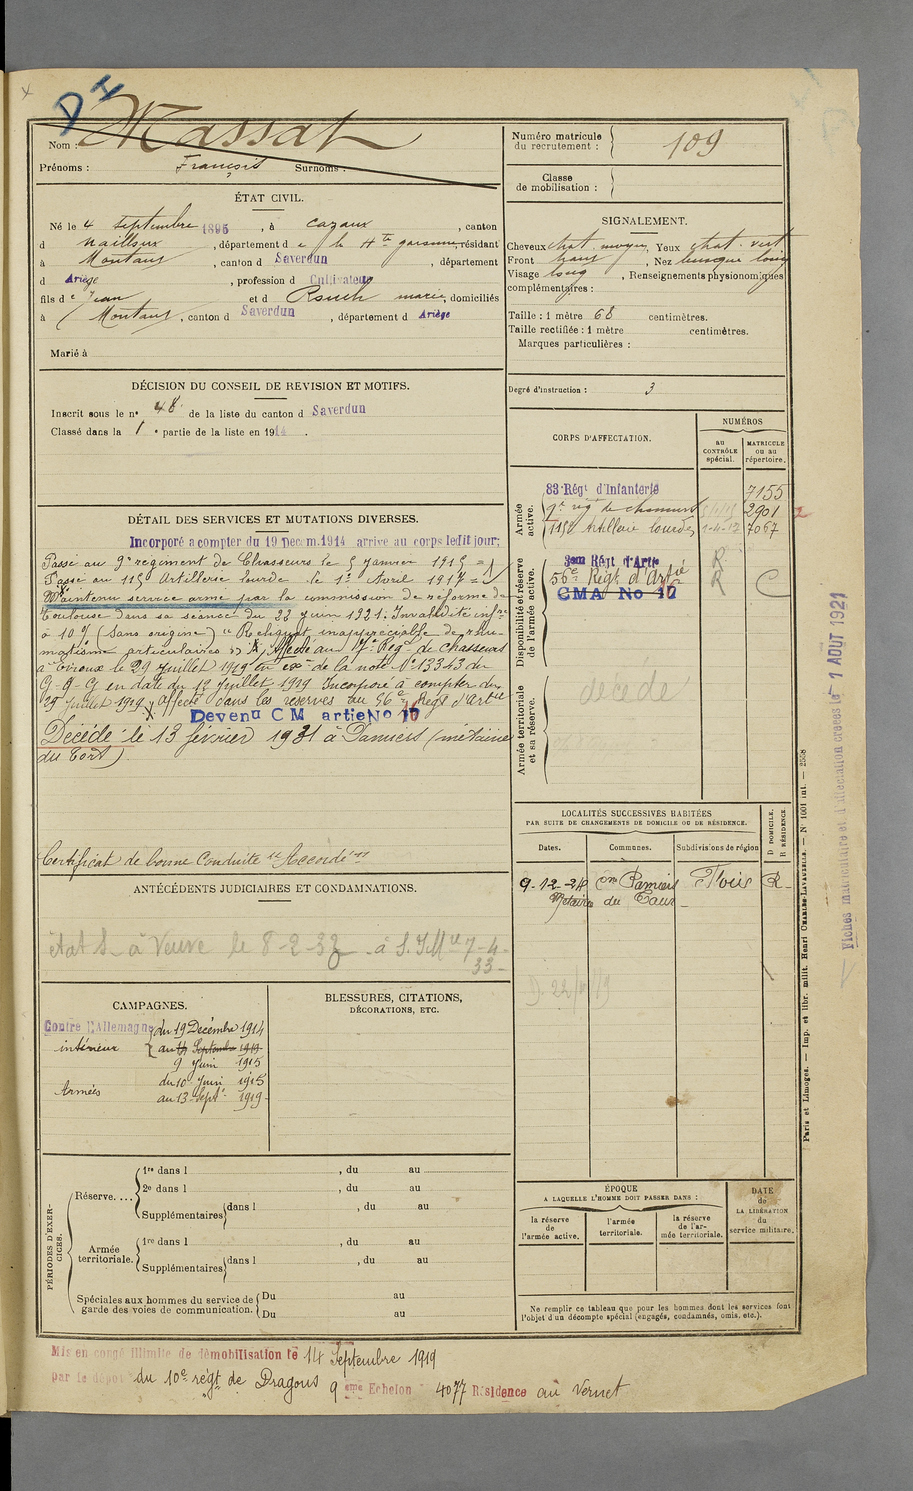 D I
Nom : Massat
Prénoms : François Surnoms :
ÉTAT CIVIL.
Né le 4 septembre 1895, à Cazaux, canton
d Nailloux, département d e la Hte garonne, résidant
à Montaut, canton d Saverdun, département
d Ariège, profession d Cultivateur
fils de Jean et d Rouch marie, domiciliés
à Montaut, canton d Saverdun, département d Ariège
Marié à
DÉCISION DU CONSEIL DE REVISION ET MOTIFS.
Inscrit sous le n° 48 de la liste du canton d Saverdun
Classé dans la 1e partie de la liste en 1914.
DÉTAIL DES SERVICES ET MUTATIONS DIVERSES.
Incorporé a compter du 19 Decem. 1914 arrive au corps ledit jour;
Passé au 9e régiment de Chasseurs le 5 janvier 1915 =
Passé au 115e Artillerie lourde le 1er Avril 1917 =
Maintenu service armé par la commission de réforme de
Toulouse dans sa séance du 22 juin 1921. Invalidité infre
à 10 % (sans origine) "Reliquat inappréciable de rhu-
matisme articulaires" Affecté au 17e Régt de chasseurs
à Evreux le 29 juillet 1919 en exon de la note N° 13343 du
G-Q-G en date du 12 juillet 1919 Incorporé à compter du
29 juillet 1919 affecté dans les réserves au 56e Régt d'Artie
Devenu C M artie No 17
Décédé le 13 février 1931 à Pamiers (métairie
du Tort)
Certificat de bonne Conduite "Accordé"
ANTÉCÉDENTS JUDICIAIRES ET CONDAMNATIONS.
état S à Veuve le 8-2-32 - à S. I. Mre 7-4-
33-
CAMPAGNES.
Contre l'Allemagne du 19 Décembre 1914
intérieur au 14 Septembre 1919
9 Juin 1915
du 10 Juin 1915
Armées au 13 Septe 1919
BLESSURES, CITATIONS,
DÉCORATIONS, ETC.
PÉRIODES D'EXERCICES.
Réserve....
1re dans l , du au
2e dans l , du au
Supplémentaires dans l , du au
Armée territoriale.
1re dans l , du au
Supplémentaires dans l , du au
Spéciales aux hommes du service de
garde des voies de communication.
Du au
Du au
Numéro matricule
du recrutement : 109
Classe
de mobilisation :
SIGNALEMENT.
Cheveux chat. moyen, Yeux chat. vert
Front haut, Nez busqué long
Visage long, Renseignements physionomiques
complémentaires :
Taille : 1 mètre 68 centimètres.
Taille rectifiée : 1 mètre centimètres.
Marques particulières :
Degré d'instruction : 3
CORPS D'AFFECTATION.
NUMÉROS
au
CONTRÔLE
spécial.
MATRICULE
ou au
répertoire.
Armée
active.
83e Régt d'Infanterie 7155
9e rég de chasseurs 2901
115e Artillerie Lourde 1-4-17 7067
Disponibilité et réserve
de l'armée active.
3eme Régt d'Artie R
56e Régt d'Artie R C
CMA No 17
Armée territoriale
et sa réserve.
décédé
LOCALITÉS SUCCESSIVES HABITÉES
PAR SUITE DE CHANGEMENTS DE DOMICILE OU DE RÉSIDENCE.
Dates. Communes. Subdivisions de région
D DOMICILE.
R RÉSIDENCE.
9-12-28 Pamiers Foix R-
Metairie du Taur
ÉPOQUE
A LAQUELLE L'HOMME DOIT PASSER DANS :
la réserve
de
l'armée active.
l'armée
territoriale.
la réserve
de l'ar-
mée territoriale.
DATE
de
LA LIBÉRATION
du
service militaire.
Ne remplir ce tableau que pour les hommes dont les services font
l'objet d'un décompte spécial (engagés, condamnés, omis, etc.).
Paris et Limoges. — Imp. et libr. milit. Henri CHARLES-LAVAUZELLE. — N° 1001 int. — 2558
Fiches matriculaire et d'affectation créées le 1 AOUT 1921
Mis en congé illimité de démobilisation le 14 Septembre 1919
par le dépôt du 10e régt de Dragons 9 eme Echelon 4077 Résidence au Vernet